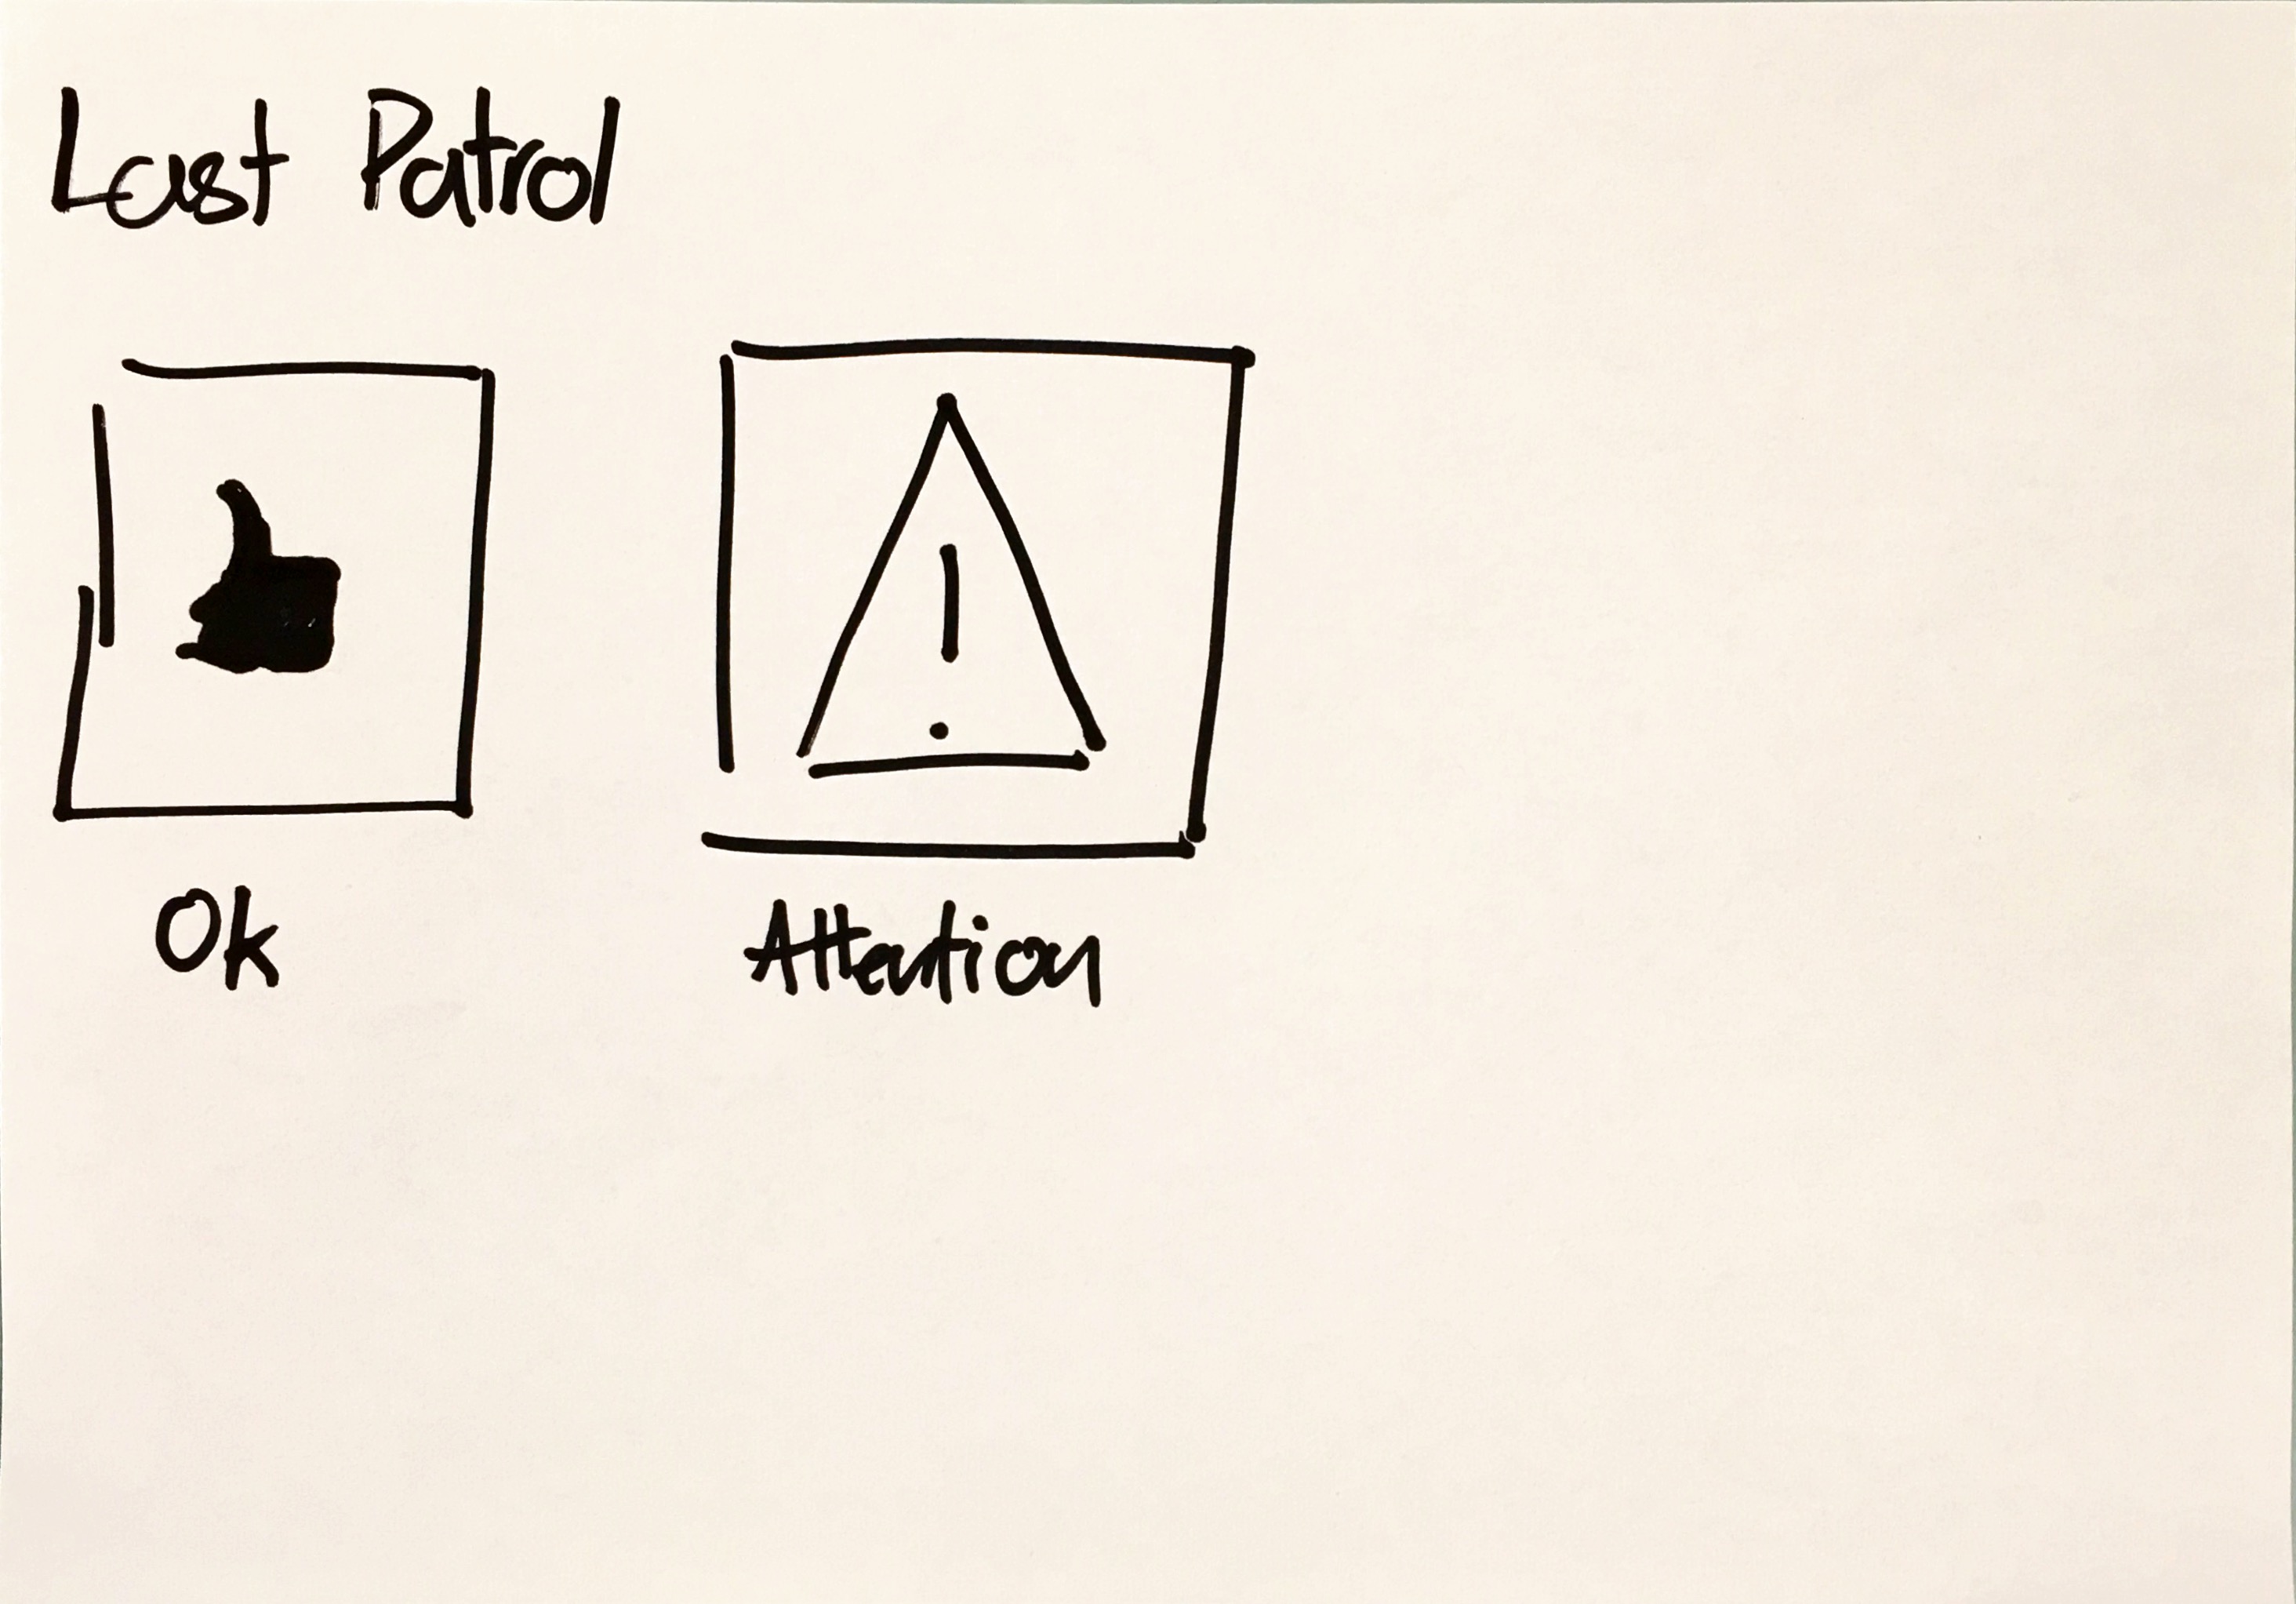 Last Patrol
Ok
!
Attention